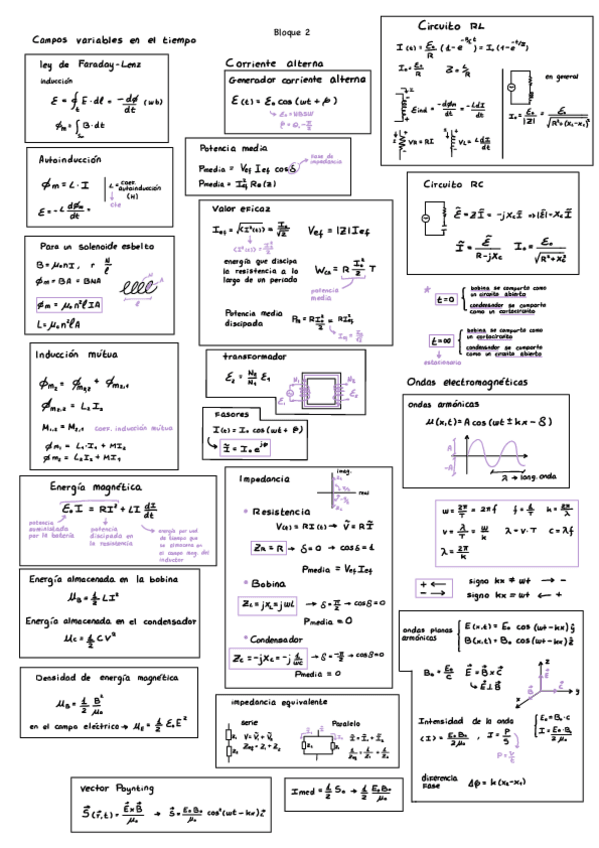 Bloque 2
Campos variables en el tiempo
ley de Faraday-Lenz
inducción
ε = ∮ E·dℓ = -dϕ/dt (wb)
ϕm = ∫ B·dt
Autoinducción
ϕm = L·I
L = coef. autoinducción (H)
cte
ε = -L dϕm/dt =
Para un solenoide esbelto
B = μ₀nI, r N/ℓ
ϕm = BA = BNA
ϕm = μ₀n²ℓIA
L = μ₀n²ℓA
Inducción mútua
ϕm₂ = ϕm₂,₂ + ϕm₂,₁
ϕm₂,₂ = L₂I₂
M₁,₂ = M₂,₁ coef. inducción mútua
ϕm₁ = L₁·I₁ + MI₂
ϕm₂ = L₂I₂ + MI₁
Energía magnética
ε₀I = RI² + LI dI/dt
potencia suministrada por la batería
potencia disipada en la resistencia
energía por ud de tiempo que se almacena en el campo mag. del inductor
Energía almacenada en la bobina
μB = 1/2 LI²
Energía almacenada en el condensador
μC = 1/2 CV²
Densidad de energía magnética
μB = 1/2 B²/μ₀
en el campo eléctrico → μE = 1/2 ε₀E²
vector Poynting
S(r,t) = E×B/μ₀ → S = E₀B₀/μ₀ cos²(wt-kx)î
Corriente alterna
Generador corriente alterna
ε(t) = ε₀ cos(wt + β)
ε₀ = NBSW
β = 0, -π/2
Potencia media
Pmedia = Vef Ief cosδ
fase de impedancia
Pmedia = I²ef Re(Z)
Valor eficaz
Ief = √⟨I²(t)⟩ = I₀/√2 Vef = |Z|Ief
⟨I²(t)⟩ = I₀²/2
energía que disipa la resistencia a lo largo de un periodo
W = R I₀²/2 T
potencia media
Potencia media discipada
PR = R I₀²/2 = RI²ef
transformador
ε₂ = N₂/N₁ ε₁
N₁ N₂
ε₁ ε₂
Fasores
I(t) = I₀ cos(wt + β)
Ĩ = I₀ e^jβ
Impedancia
imag.
real
• Resistencia
V(t) = RI(t) → Ṽ = RĨ
ZR = R → δ = 0 → cosδ = 1
Pmedia = Vef Ief
• Bobina
ZL = jXL = jwL → δ = π/2 → cosδ = 0
Pmedia = 0
• Condensador
ZC = -jXC = -j 1/wC → δ = -π/2 → cosδ = 0
Pmedia = 0
impedancia equivalente
serie
V = V₁ + V₂
Zeq = Z₁ + Z₂
Paralelo
Ĩ = Ĩ₁ + Ĩ₂
1/Zeq = 1/Z₁ + 1/Z₂
Imed = 1/2 S₀ → 1/2 E₀B₀/μ₀
Circuito RL
I₀ = ε₀/R
en general
εind = -dϕm/dt = -LdI/dt
VR = RI VL = L dI/dt
Circuito RC
I₀ = ε₀/√(R²+Xc²)
*
t=0
bobina se comporta como un circuito abierto
condensador se comporta como un cortocircuito
t=∞
estacionaria
bobina se comporta como un cortocircuito
condensador se comporta como un circuito abierto
Ondas electromagnéticas
ondas armónicas
μ(x,t) = A cos(wt ± kx - δ)
A
-A
λ → long. onda
w = 2π/T = 2πf f = 1/T k = 2π/λ
v = λ/T = w/k λ = v·T c = λf
λ = 2π/k
+ ←
- →
signo kx ≠ wt → -
signo kx = wt ← +
ondas planas armónicas
E(x,t) = E₀ cos(wt-kx)ĵ
B(x,t) = B₀ cos(wt-kx)k̂
B₀ = E₀/c E = B×c
E⊥B
z
y
x
Intensidad de la onda
⟨I⟩ = E₀B₀/2μ₀, I = P/S
E₀ = B₀·c
I = E₀·B₀/2μ₀
diferencia fase
Δϕ = k(x₂-x₁)